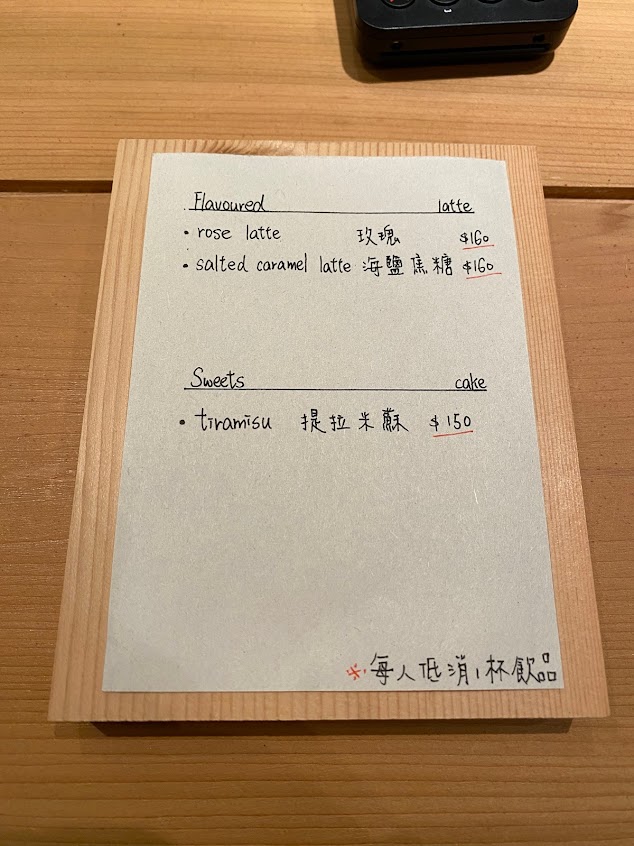 Flavoured latte
• rose latte 玫瑰 $160
• salted caramel latte 海鹽焦糖 $160
Sweets cake
• tiramisu 提拉米蘇 $150
※每人低消1杯飲品